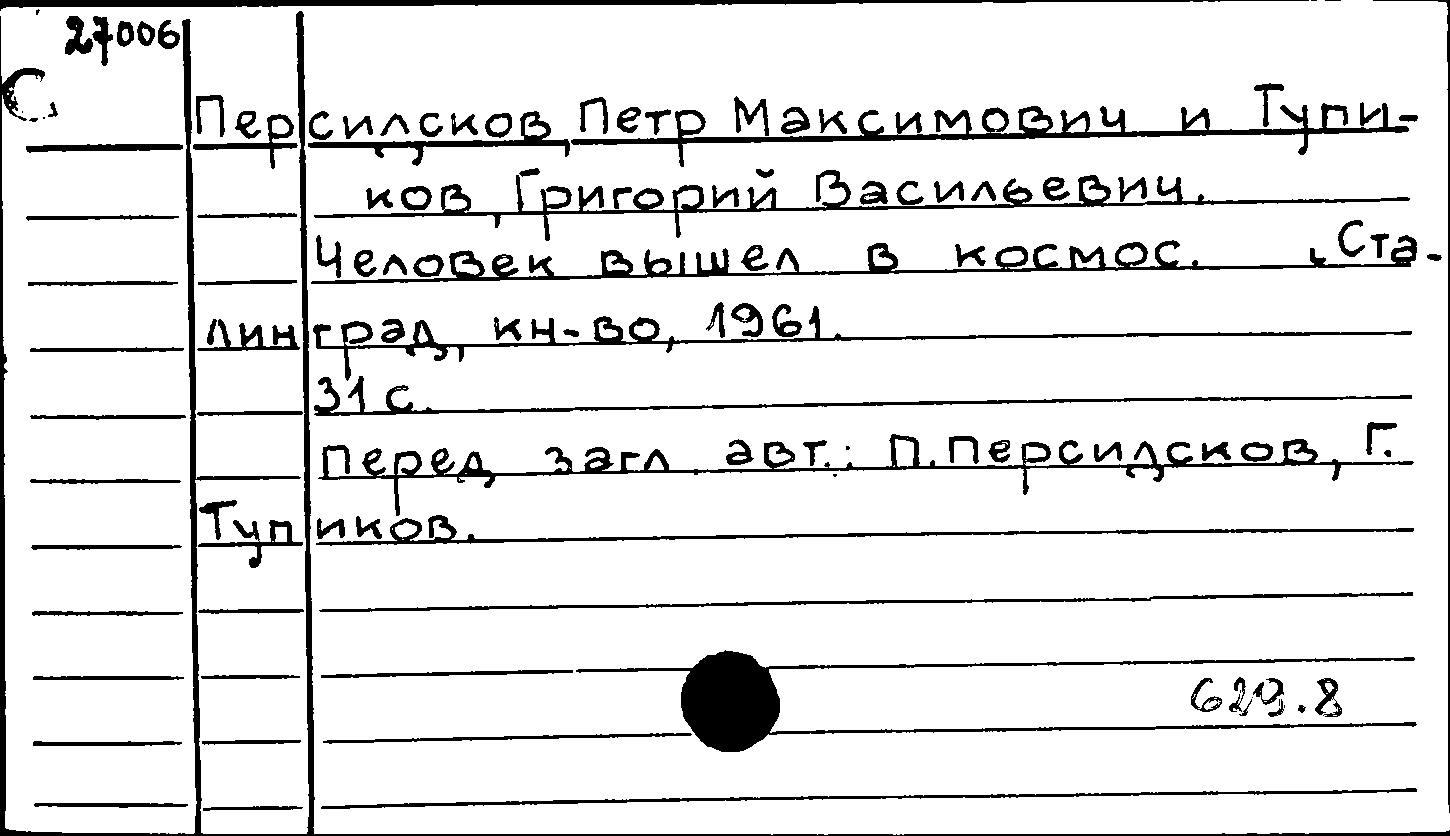 27006
С
Персидсков, Петр Максимович и Тупи-
ков, Григорий Васильевич.
Человек вышел в космос. Ста-
линград, кн-во, 1961.
31 с.
Перед загл. авт.: П. Персидсков, Г.
Тупиков.
629.8